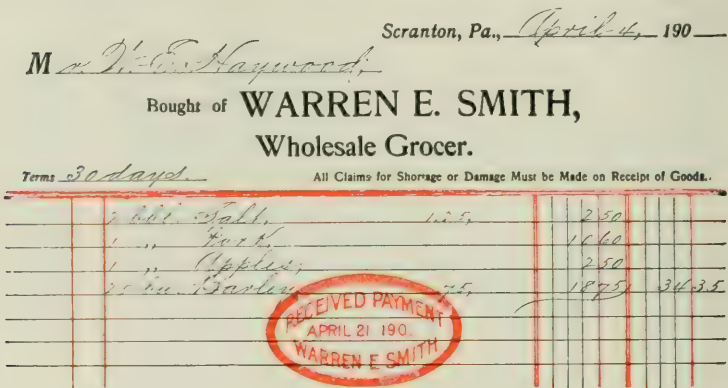 Scranton, Pa., April 4, 190
Mr. W. E. Haywood,
Bought of WARREN E. SMITH,
Wholesale Grocer.
Terms 30 days. All Claims for Shortage or Damage Must be Made on Receipt of Goods.
2 bbl. Salt, 1.25, 2 50
1 " Pork, 16 60
1 " Apples, 2 50
25 bu. Barley .75, 18 75 34 35
RECEIVED PAYMENT
APRIL 21 190
WARREN E SMITH